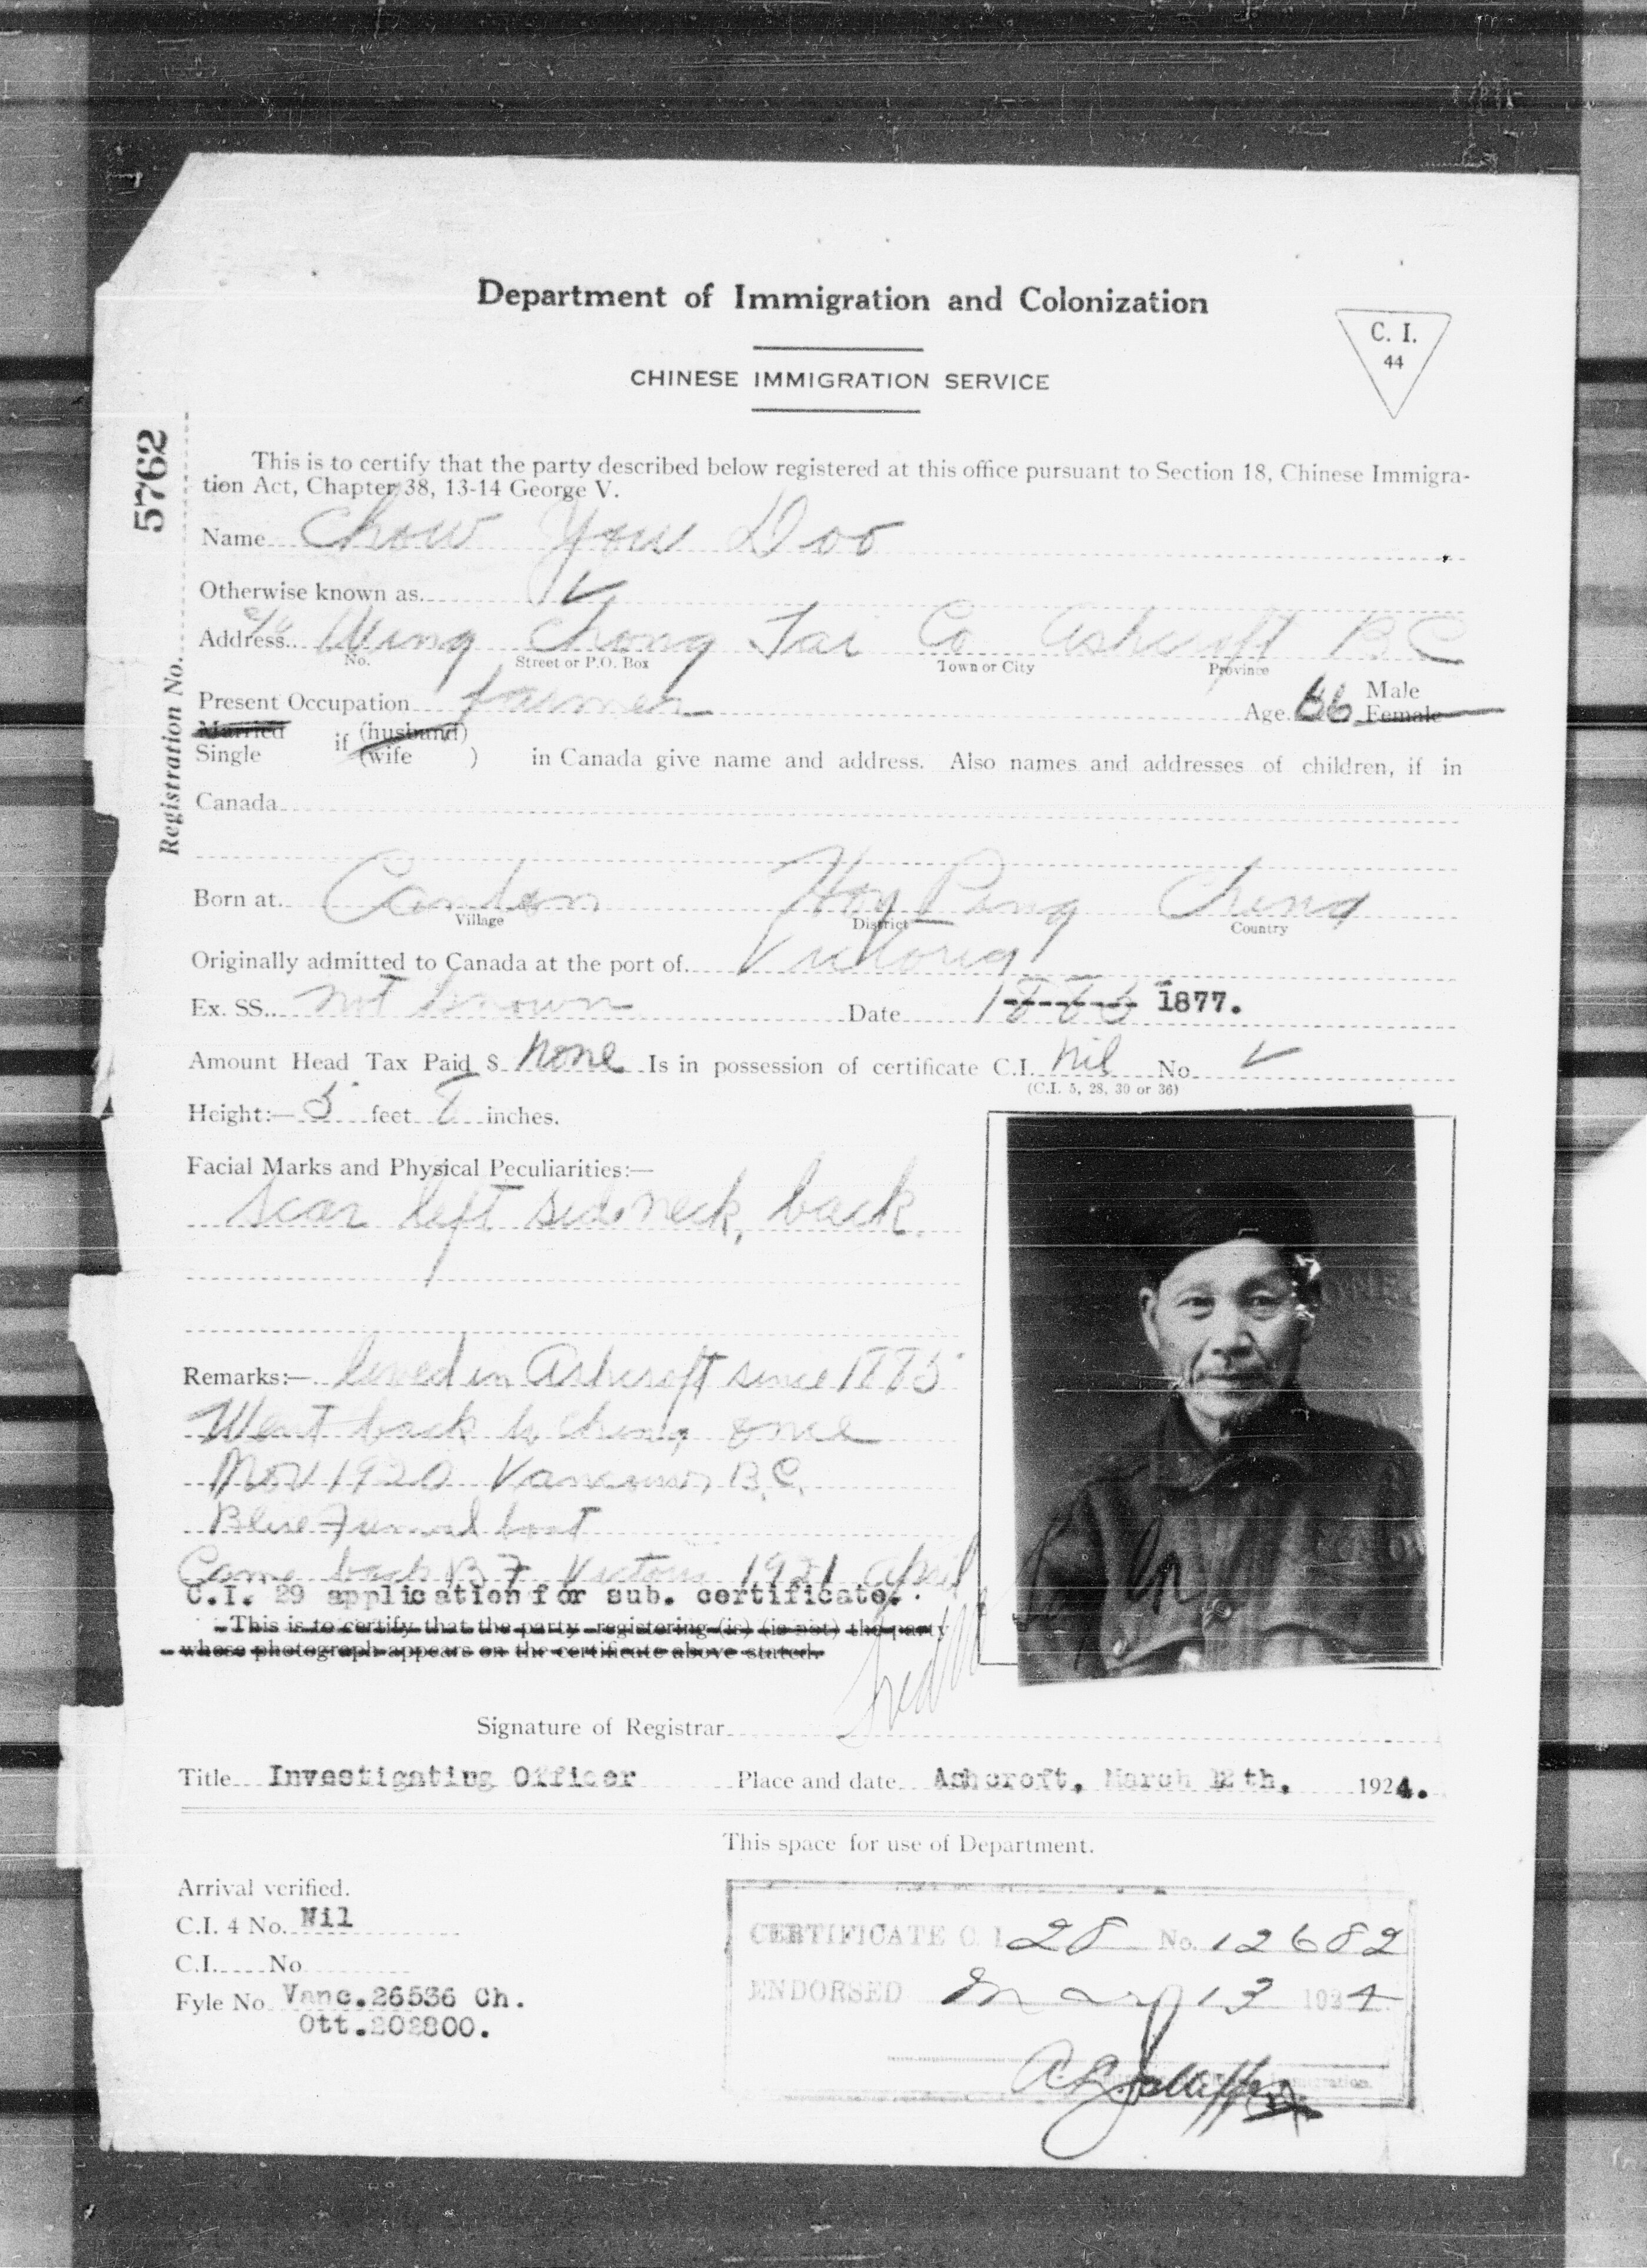 Department of Immigration and Colonization
C. I.
44
CHINESE IMMIGRATION SERVICE
5762
Registration No.
This is to certify that the party described below registered at this office pursuant to Section 18, Chinese Immigra-
tion Act, Chapter 38, 13-14 George V.
Name Chow You Doo
Otherwise known as
Address c/o Wing Chong Tai Co Ashcroft B C
No. Street or P.O. Box Town or City Province
Present Occupation farmer Age 66 Male
Female
Married
Single if (husband)
(wife ) in Canada give name and address. Also names and addresses of children, if in
Canada
Born at Canton Hoy Ping China
Village District Country
Originally admitted to Canada at the port of Victoria
Ex. SS. not known Date 1885 1877.
Amount Head Tax Paid $ none Is in possession of certificate C.I. nil No.
(C.I. 5, 28, 30 or 36)
Height:— 5 feet inches.
Facial Marks and Physical Peculiarities:—
Scar left side neck, back.
Remarks:— lived in Ashcroft since 1885
Went back to China once
Nov 1920 Vancouver B.C.
Blue Funnel boat
Came back B F Victoria 1921 April
C.I. 29 application for sub. certificate.
This is to certify that the party registering (is) (is not) the party
whose photograph appears on the certificate above stated.
Signature of Registrar
Title Investigating Officer Place and date Ashcroft, March 12th, 1924.
This space for use of Department.
Arrival verified.
C.I. 4 No. Nil
C.I. No
Fyle No Vanc.26536 Ch.
Ott.202800.
CERTIFICATE C. I. 28 No. 12682
ENDORSED May 13 1924